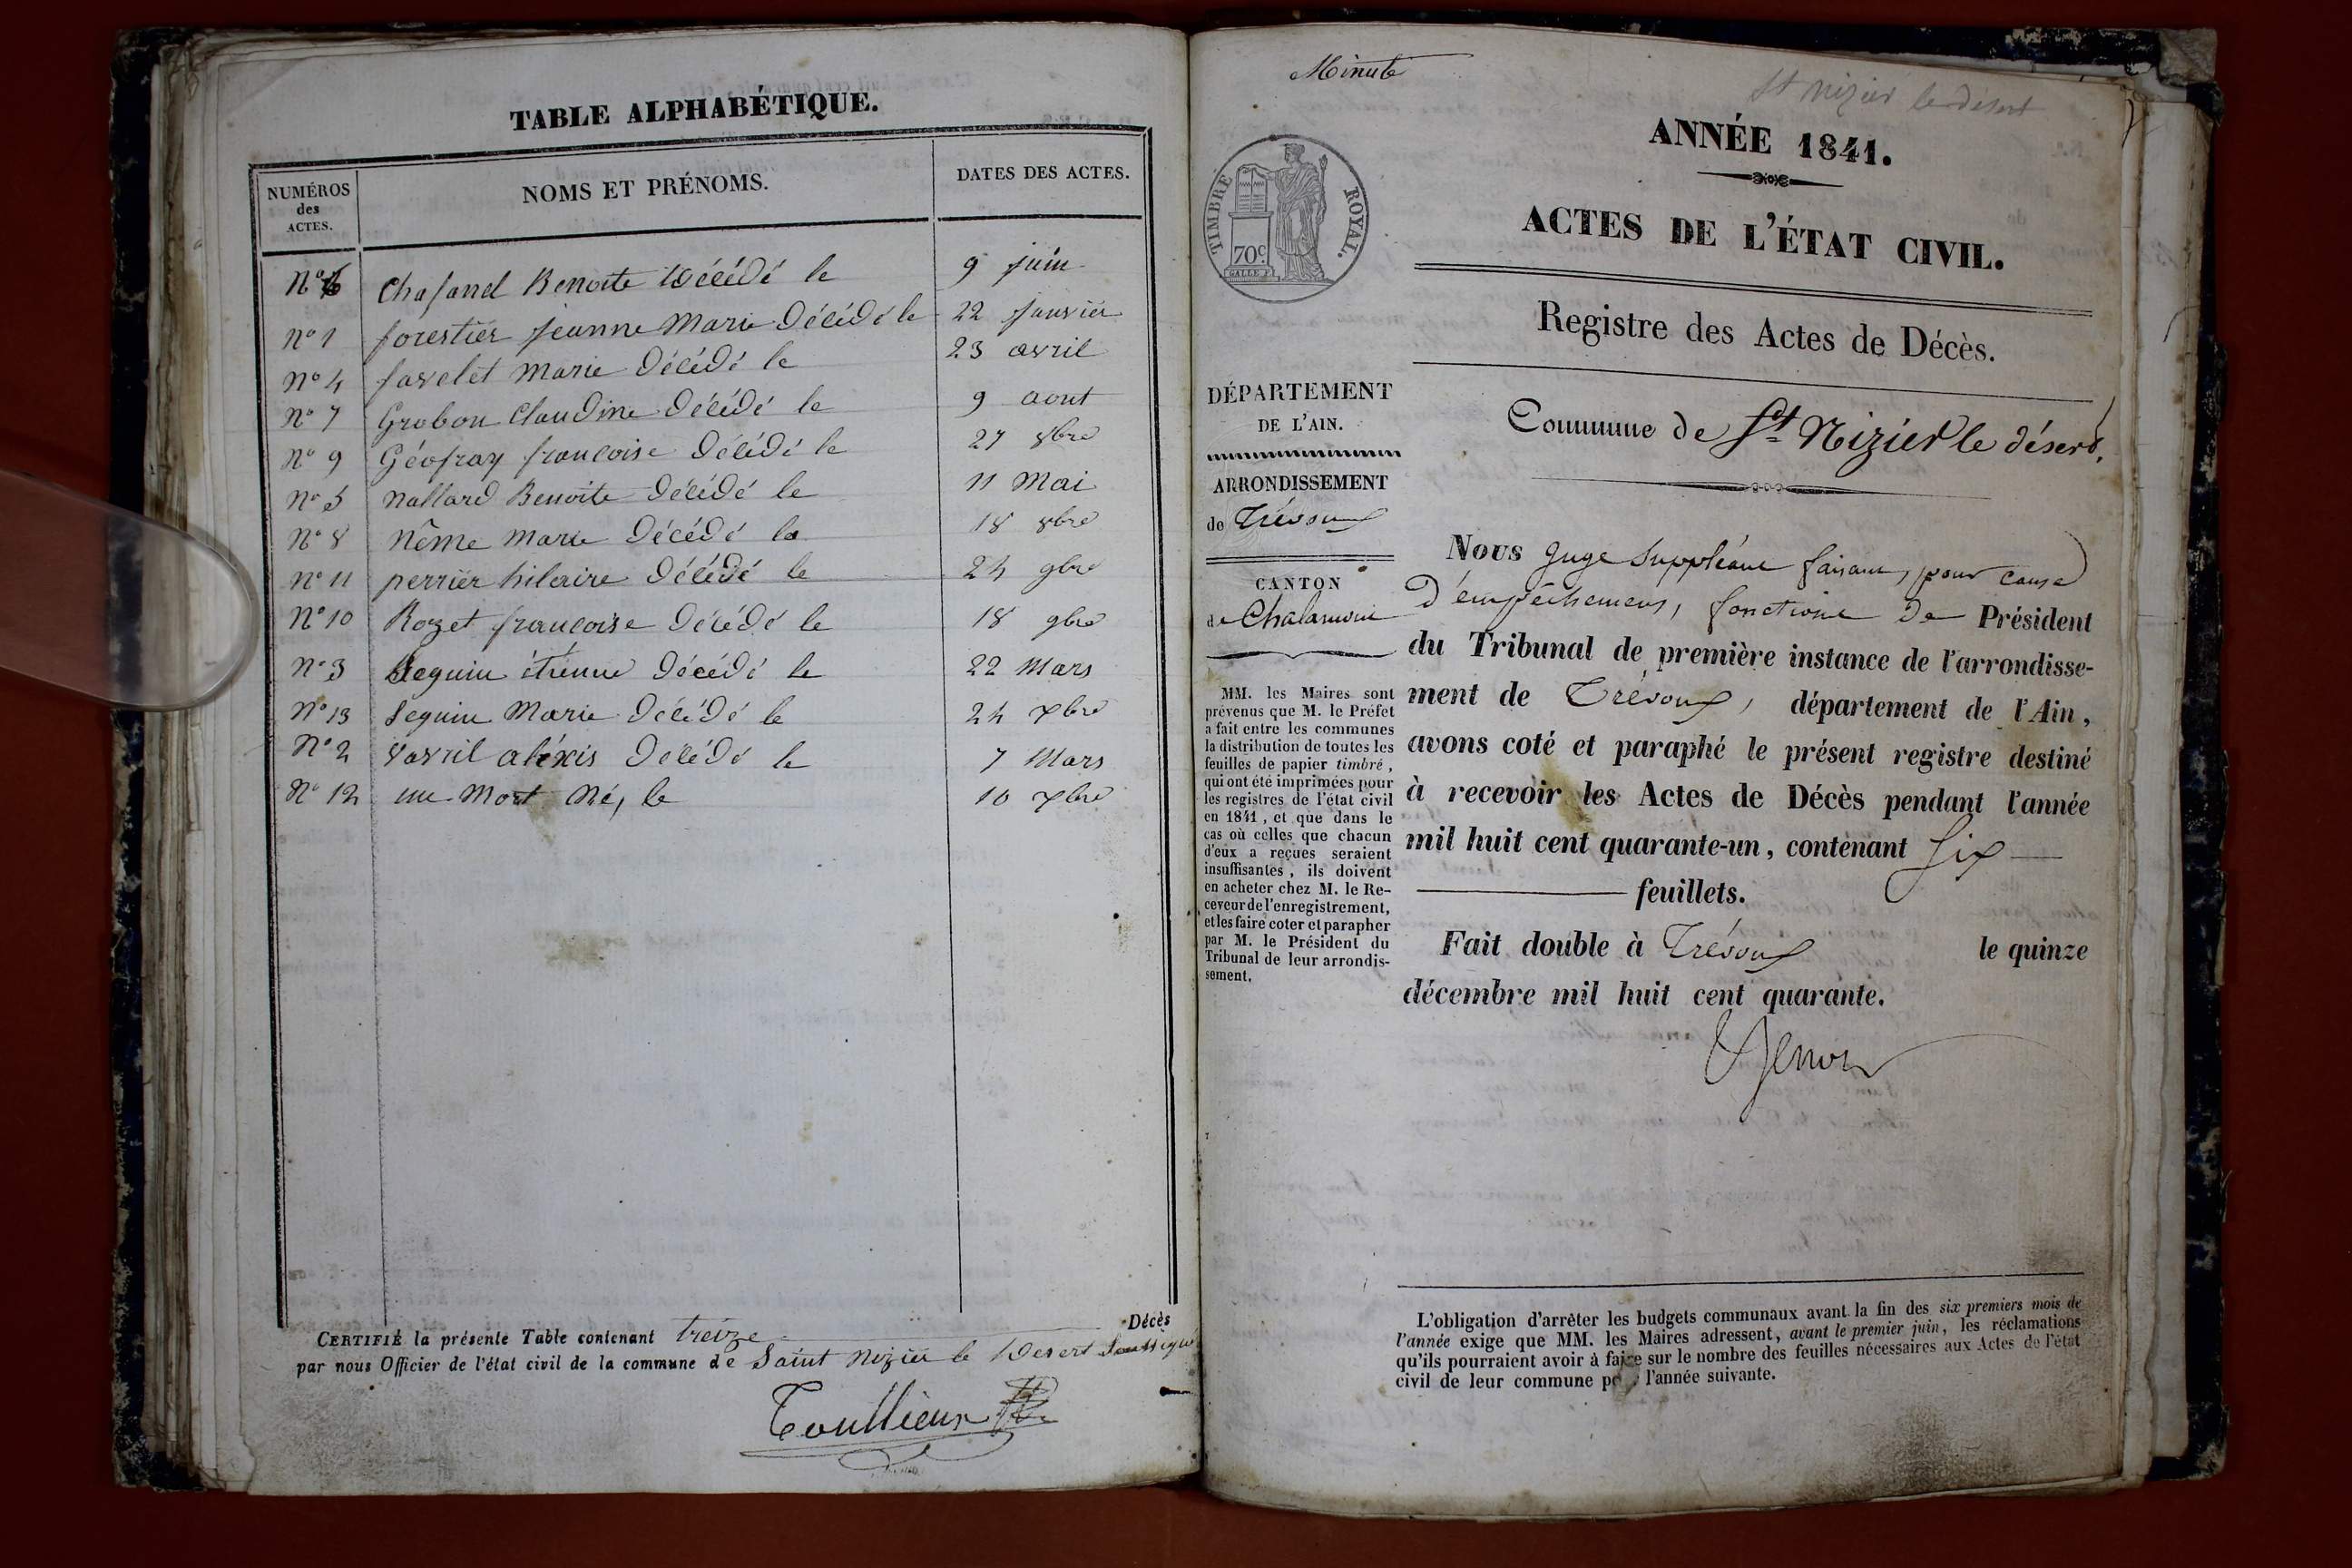 TABLE ALPHABÉTIQUE.
NUMÉROS
des
ACTES.
NOMS ET PRÉNOMS.
DATES DES ACTES.
N° 6 Chafanel Benoite Décédé le 9 juin
n° 1 forestier jeanne Marie Décédé le 22 janvier
n° 4 favelet Marie Décédé le 23 avril
n° 7 Grobon Claudine Décédé le 9 aout
n° 9 Géofray françoise Décédé le 27 8bre
n° 5 nallard Benoite Décédé le 11 Mai
n° 8 nême Marie Décédé le 18 8bre
n° 11 perrier hilaire Décédé le 24 9bre
N° 10 Rozet françoise Décédé le 18 9bre
n° 3 Seguin étienne Décédé le 22 Mars
n° 13 Seguin Marie Décédé le 24 xbre
N° 2 vavril aléxis Décédé le 7 Mars
N° 12 un Mort Né, le 10 xbre
CERTIFIÉ la présente Table contenant treize Décès
par nous Officier de l'état civil de la commune de Saint Nizier le Desert
Toullieux
Minute
St Nizier le désert
TIMBRE ROYAL.
70c.
ANNÉE 1841.
ACTES DE L'ÉTAT CIVIL.
Registre des Actes de Décès.
Commune de St Nizier le désert,
DÉPARTEMENT
DE L'AIN.
ARRONDISSEMENT
de Trévoux
CANTON
de Chalamont
MM. les Maires sont
prévenus que M. le Préfet
a fait entre les communes
la distribution de toutes les
feuilles de papier timbré,
qui ont été imprimées pour
les registres de l'état civil
en 1841, et que dans le
cas où celles que chacun
d'eux a reçues seraient
insuffisantes, ils doivent
en acheter chez M. le Re-
ceveur de l'enregistrement,
et les faire coter et parapher
par M. le Président du
Tribunal de leur arrondis-
sement.
Nous Juge Suppléant faisant, pour cause
d'empêchement, fonctions de Président
du Tribunal de première instance de l'arrondisse-
ment de Trévoux, département de l'Ain,
avons coté et paraphé le présent registre destiné
à recevoir les Actes de Décès pendant l'année
mil huit cent quarante-un, contenant six
feuillets.
Fait double à Trévoux le quinze
décembre mil huit cent quarante.
L'obligation d'arrêter les budgets communaux avant la fin des six premiers mois de
l'année exige que MM. les Maires adressent, avant le premier juin, les réclamations
qu'ils pourraient avoir à faire sur le nombre des feuilles nécessaires aux Actes de l'état
civil de leur commune l'année suivante.